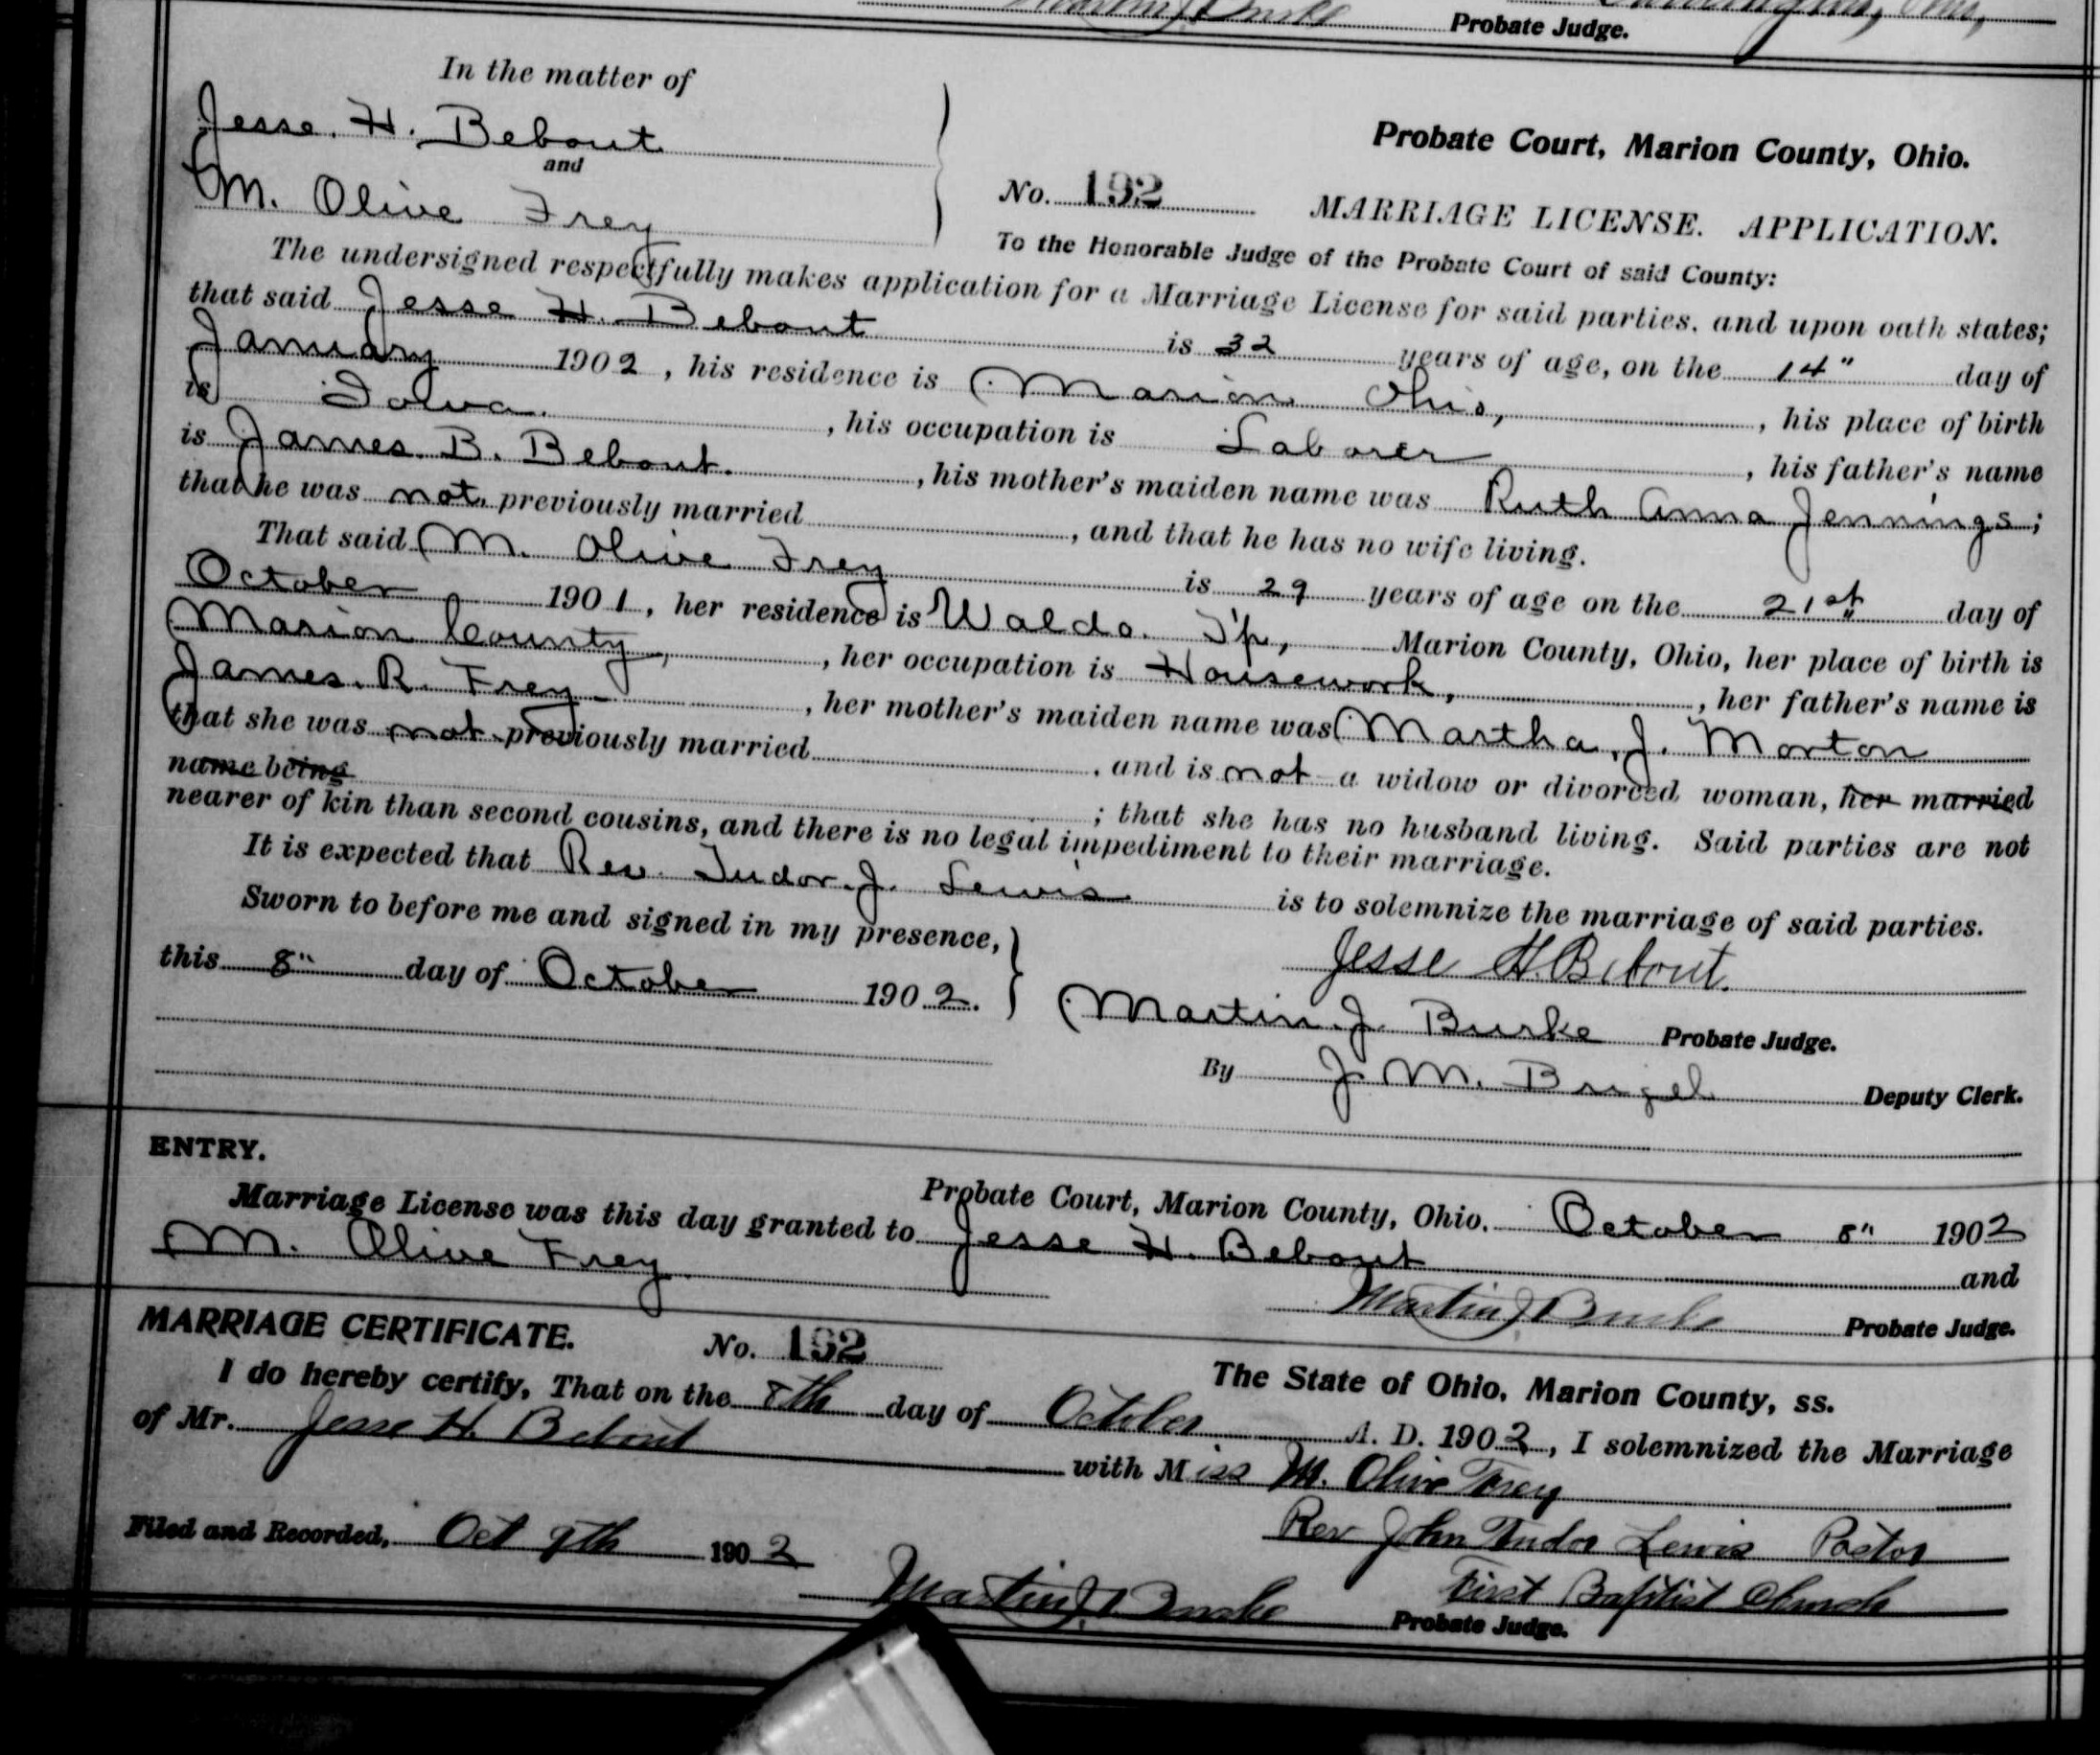 Martin J Burke Probate Judge.
In the matter of
Jesse. H. Bebout
and
M. Olive Frey
Probate Court, Marion County, Ohio.
No. 192 MARRIAGE LICENSE. APPLICATION.
To the Honorable Judge of the Probate Court of said County:
The undersigned respectfully makes application for a Marriage License for said parties, and upon oath states;
that said Jesse H. Bebout is 32 years of age, on the 14" day of
January 1902, his residence is Marion Ohio, , his place of birth
is Iowa. , his occupation is Laborer , his father's name
is James. B. Bebout. , his mother's maiden name was Ruth Anna Jennings;
that he was not previously married , and that he has no wife living.
That said M. Olive Frey is 29 years of age on the 21st day of
October 1901, her residence is Waldo. Tp, Marion County, Ohio, her place of birth is
Marion County, , her occupation is Housework, , her father's name is
James. R. Frey , her mother's maiden name was Martha. J. Morton
that she was not previously married , and is not a widow or divorced woman, her married
name being ; that she has no husband living. Said parties are not
nearer of kin than second cousins, and there is no legal impediment to their marriage.
It is expected that Rev. Tudor. J. Lewis is to solemnize the marriage of said parties.
Sworn to before me and signed in my presence,
Jesse H. Bebout.
this 8" day of October 1902.
Martin. J. Burke Probate Judge.
By J. M. Deputy Clerk.
ENTRY.
Probate Court, Marion County, Ohio. October 8" 1902
Marriage License was this day granted to Jesse H. Bebout and
M. Olive Frey
Martin J Burke Probate Judge.
MARRIAGE CERTIFICATE. No. 192
The State of Ohio, Marion County, ss.
I do hereby certify, That on the 8th day of October A. D. 1902, I solemnized the Marriage
of Mr. Jesse H. Bebout with Miss M. Olive Frey
Rev John Tudor Lewis Pastor
Filed and Recorded, Oct 9th 1902
First Baptist Church
Martin J Burke Probate Judge.